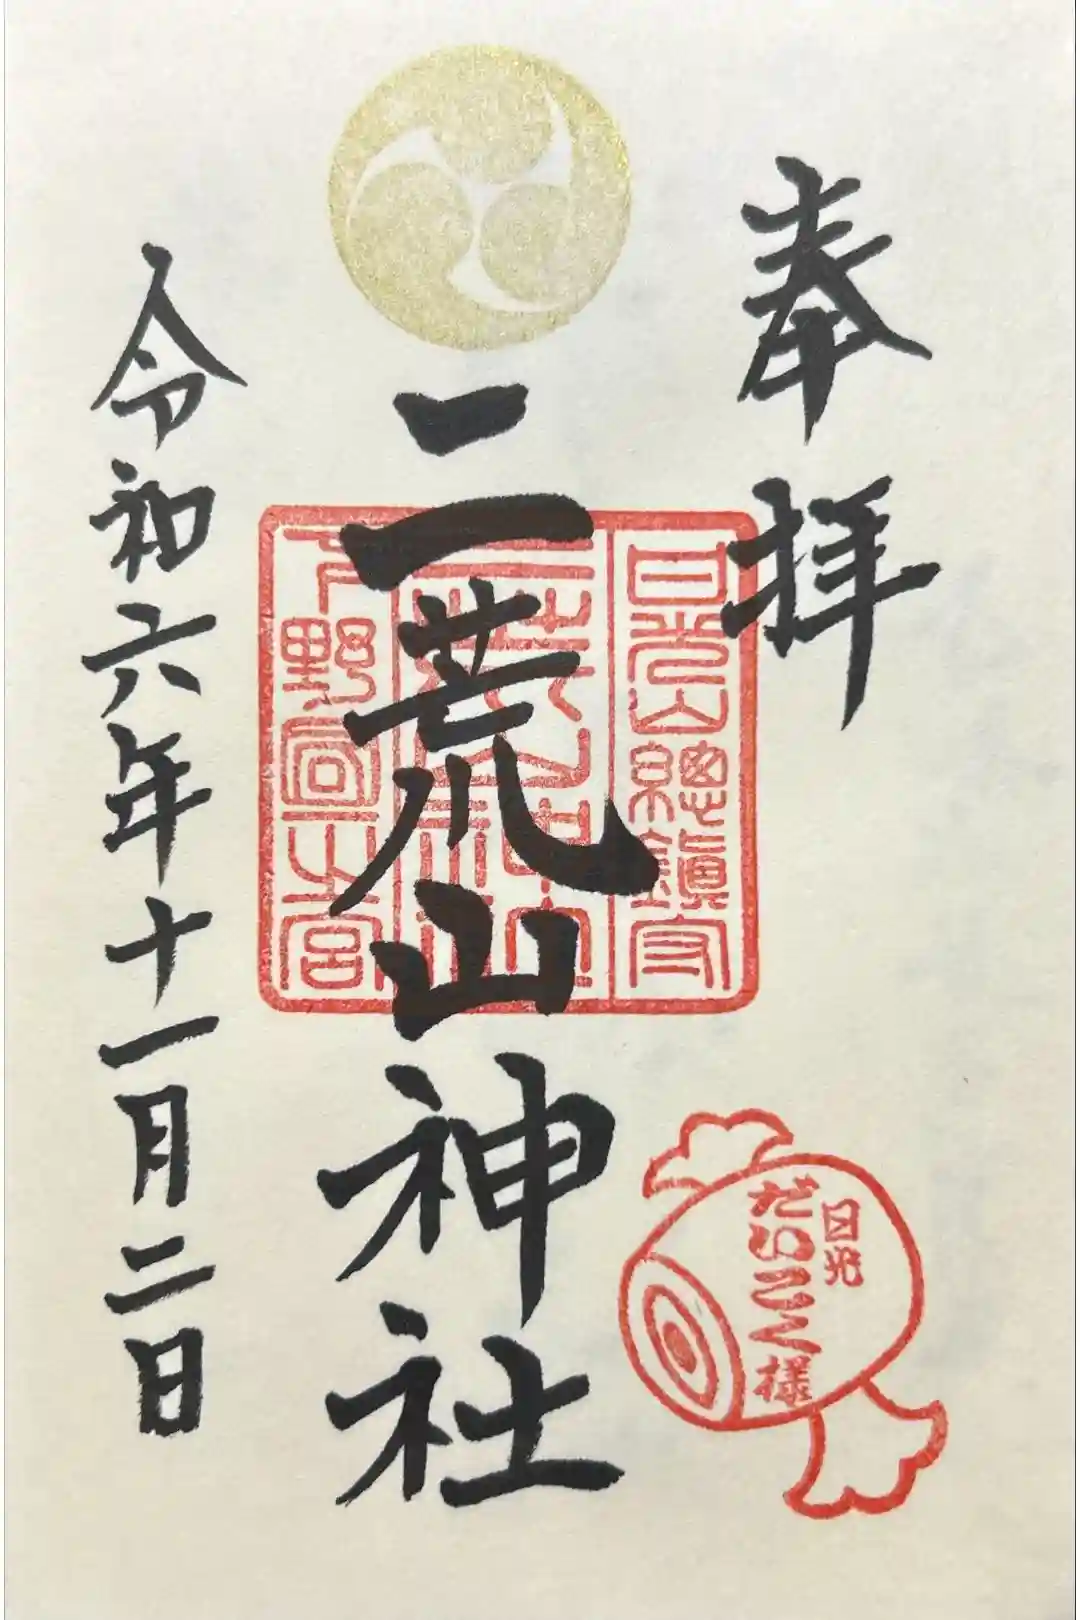 奉拝
日光山總鎮守
二荒山神社
二荒山神社
下野國一之宮
令和六年十一月二日
日光
だいこく様